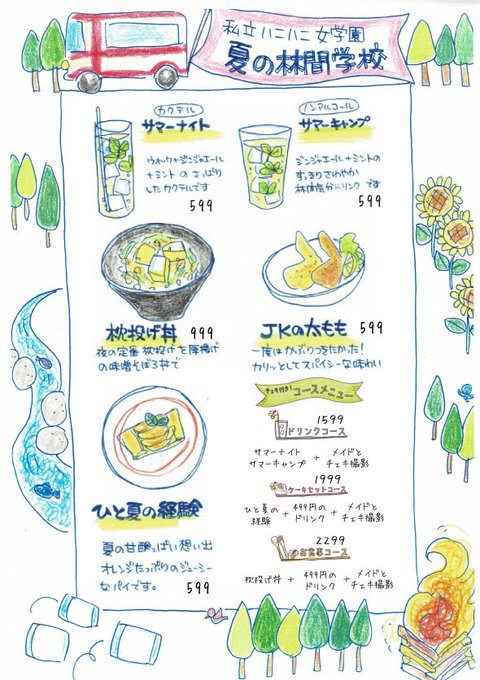 私立ハニハニ女学園
夏の林間学校
カクテル
サマーナイト
ウォッカ+ジンジャエール
+ミントのさっぱり
したカクテルです
599
ノンアルコール
サマーキャンプ
ジンジャエール+ミントの
すっきりさわやか
林間気分ドリンクです
599
枕投げ丼 999
夜の定番 枕投げを厚揚げ
の味噌そぼろ丼で
JKの太もも 599
一度はかぶりつきたかった!
カリッとしてスパイシーな味わい
ひと夏の経験
夏の甘酸っぱい想い出
オレンジたっぷりのジューシー
なパイです。 599
チェキ付き! コースメニュー
1599
ドリンクコース
サマーナイト
サマーキャンプ + メイドと
チェキ撮影
1999
ケーキセットコース
ひと夏の
経験 + 499円の
ドリンク + メイドと
チェキ撮影
2299
お食事コース
枕投げ丼 + 499円の
ドリンク + メイドと
チェキ撮影